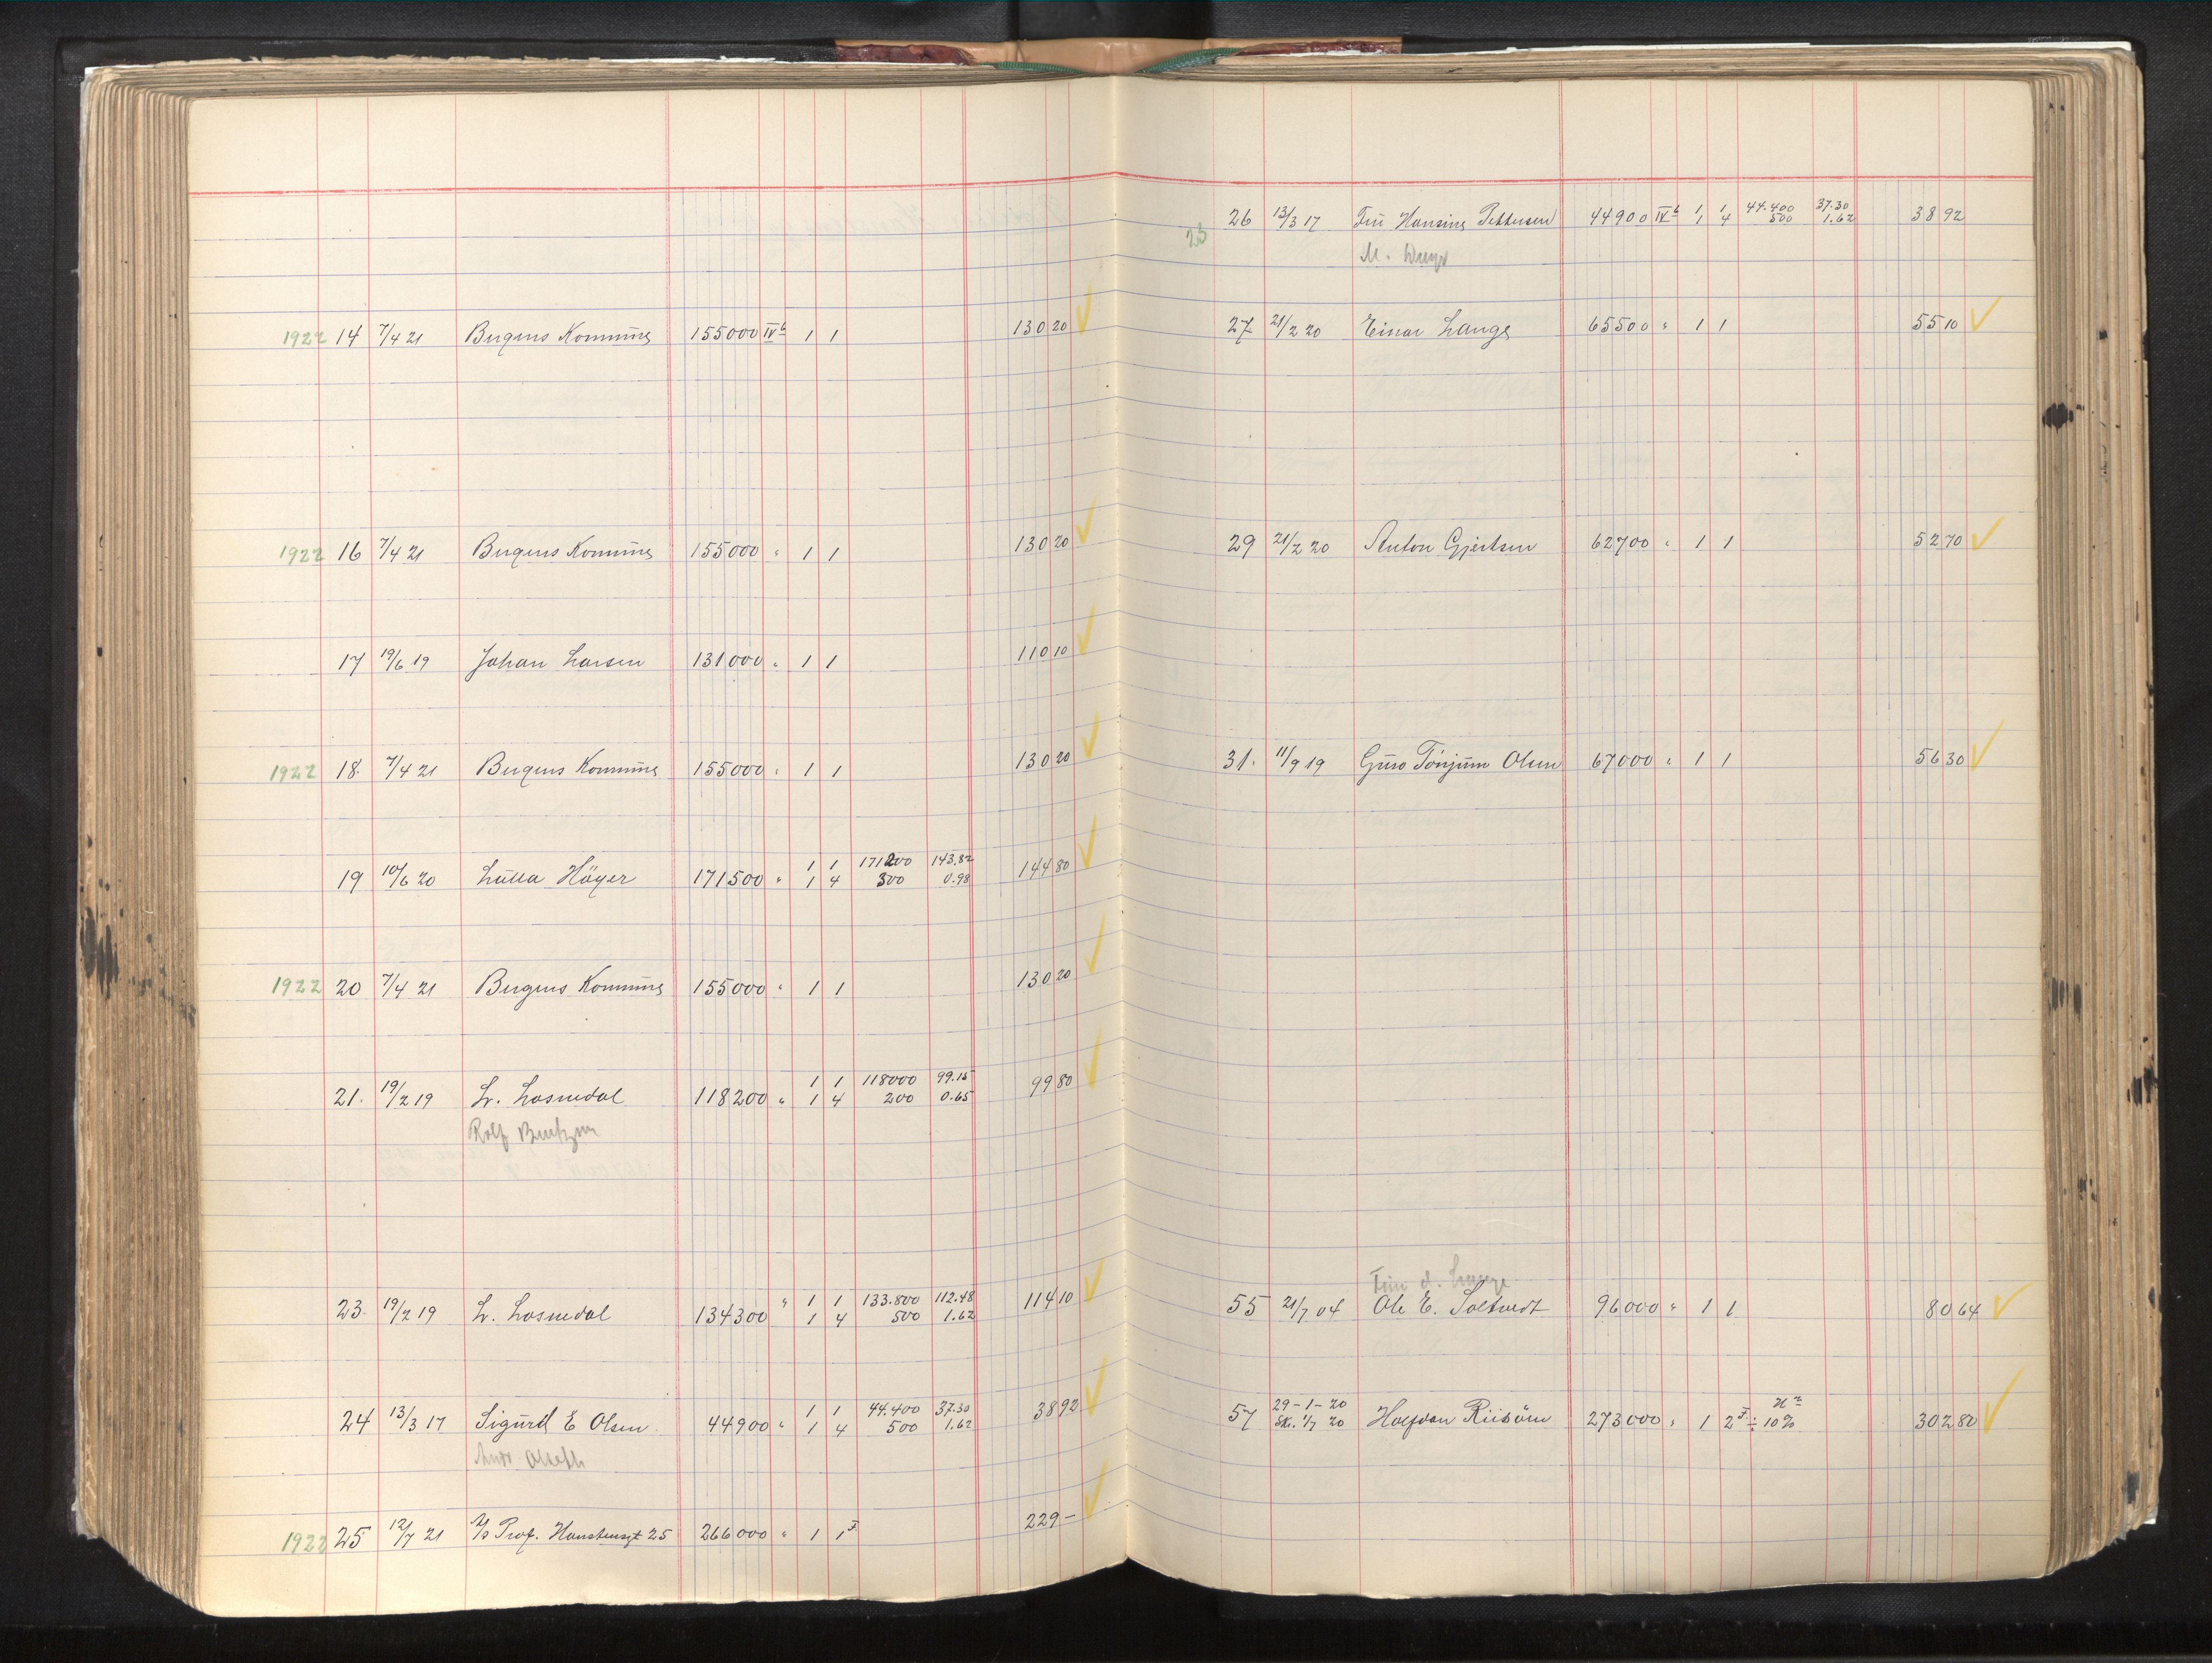 1922 14 7/4 21 Bergens Kommune 155000 IVb 1 1 130 20
1922 16 7/4 21 Bergens Kommune 155000 " 1 1 130 20
17 19/6 19 Johan Larsen 131000 " 1 1 110 10
1922 18. 7/4 21 Bergens Kommune 155000 " 1 1 130 20
1 1 171200 143.82
19 10/6 20 Lulla Höyer 171500 " 1 4 300 0.98 144 80
1922 20 7/4 21 Bergens Kommune 155000 " 1 1 130 20
1 1 118000 99.15
21. 19/2 19 L. Losnedal 118200 " 1 4 200 0.65 99 80
Rolf
" 1 1 133.800 112.48
23. 19/2 19 L. Losnedal 134300 1 4 500 1.62 114 10
1 1 44.400 37.30
24 13/3 17 Sigurd E Olsen 44900 " 1 4 500 1.62 38 92
1922 25 12/7 21 A/S Prof. Hansteensgt 25 266000 " 1 1 F. 229 -
23
26 13/3 17 Fru Hansine Pettersen 44900 IVb 1 1 44.400 37.30 38 92
1 4 500 1.62
M.
27 21/2 20 Einar Lange 65500 " 1 1 55 10
29 21/2 20 Anton Gjertsen 62700 " 1 1 52 70
31. 11/9 19 Guro Tönjum Olsen 67000 " 1 1 56 30
55 21/7 04 Ole E. Soltvedt 96000 " 1 1 80 64
29-1-20
57 Sk. 1/7 20 Halfdan Riisöen 273000 " 1 2 F. ÷ 10% 302 80